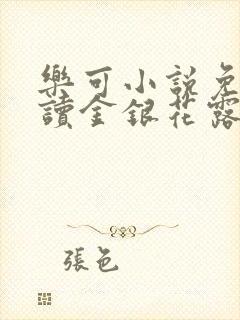 樂可小說免
讀金銀花露
張色